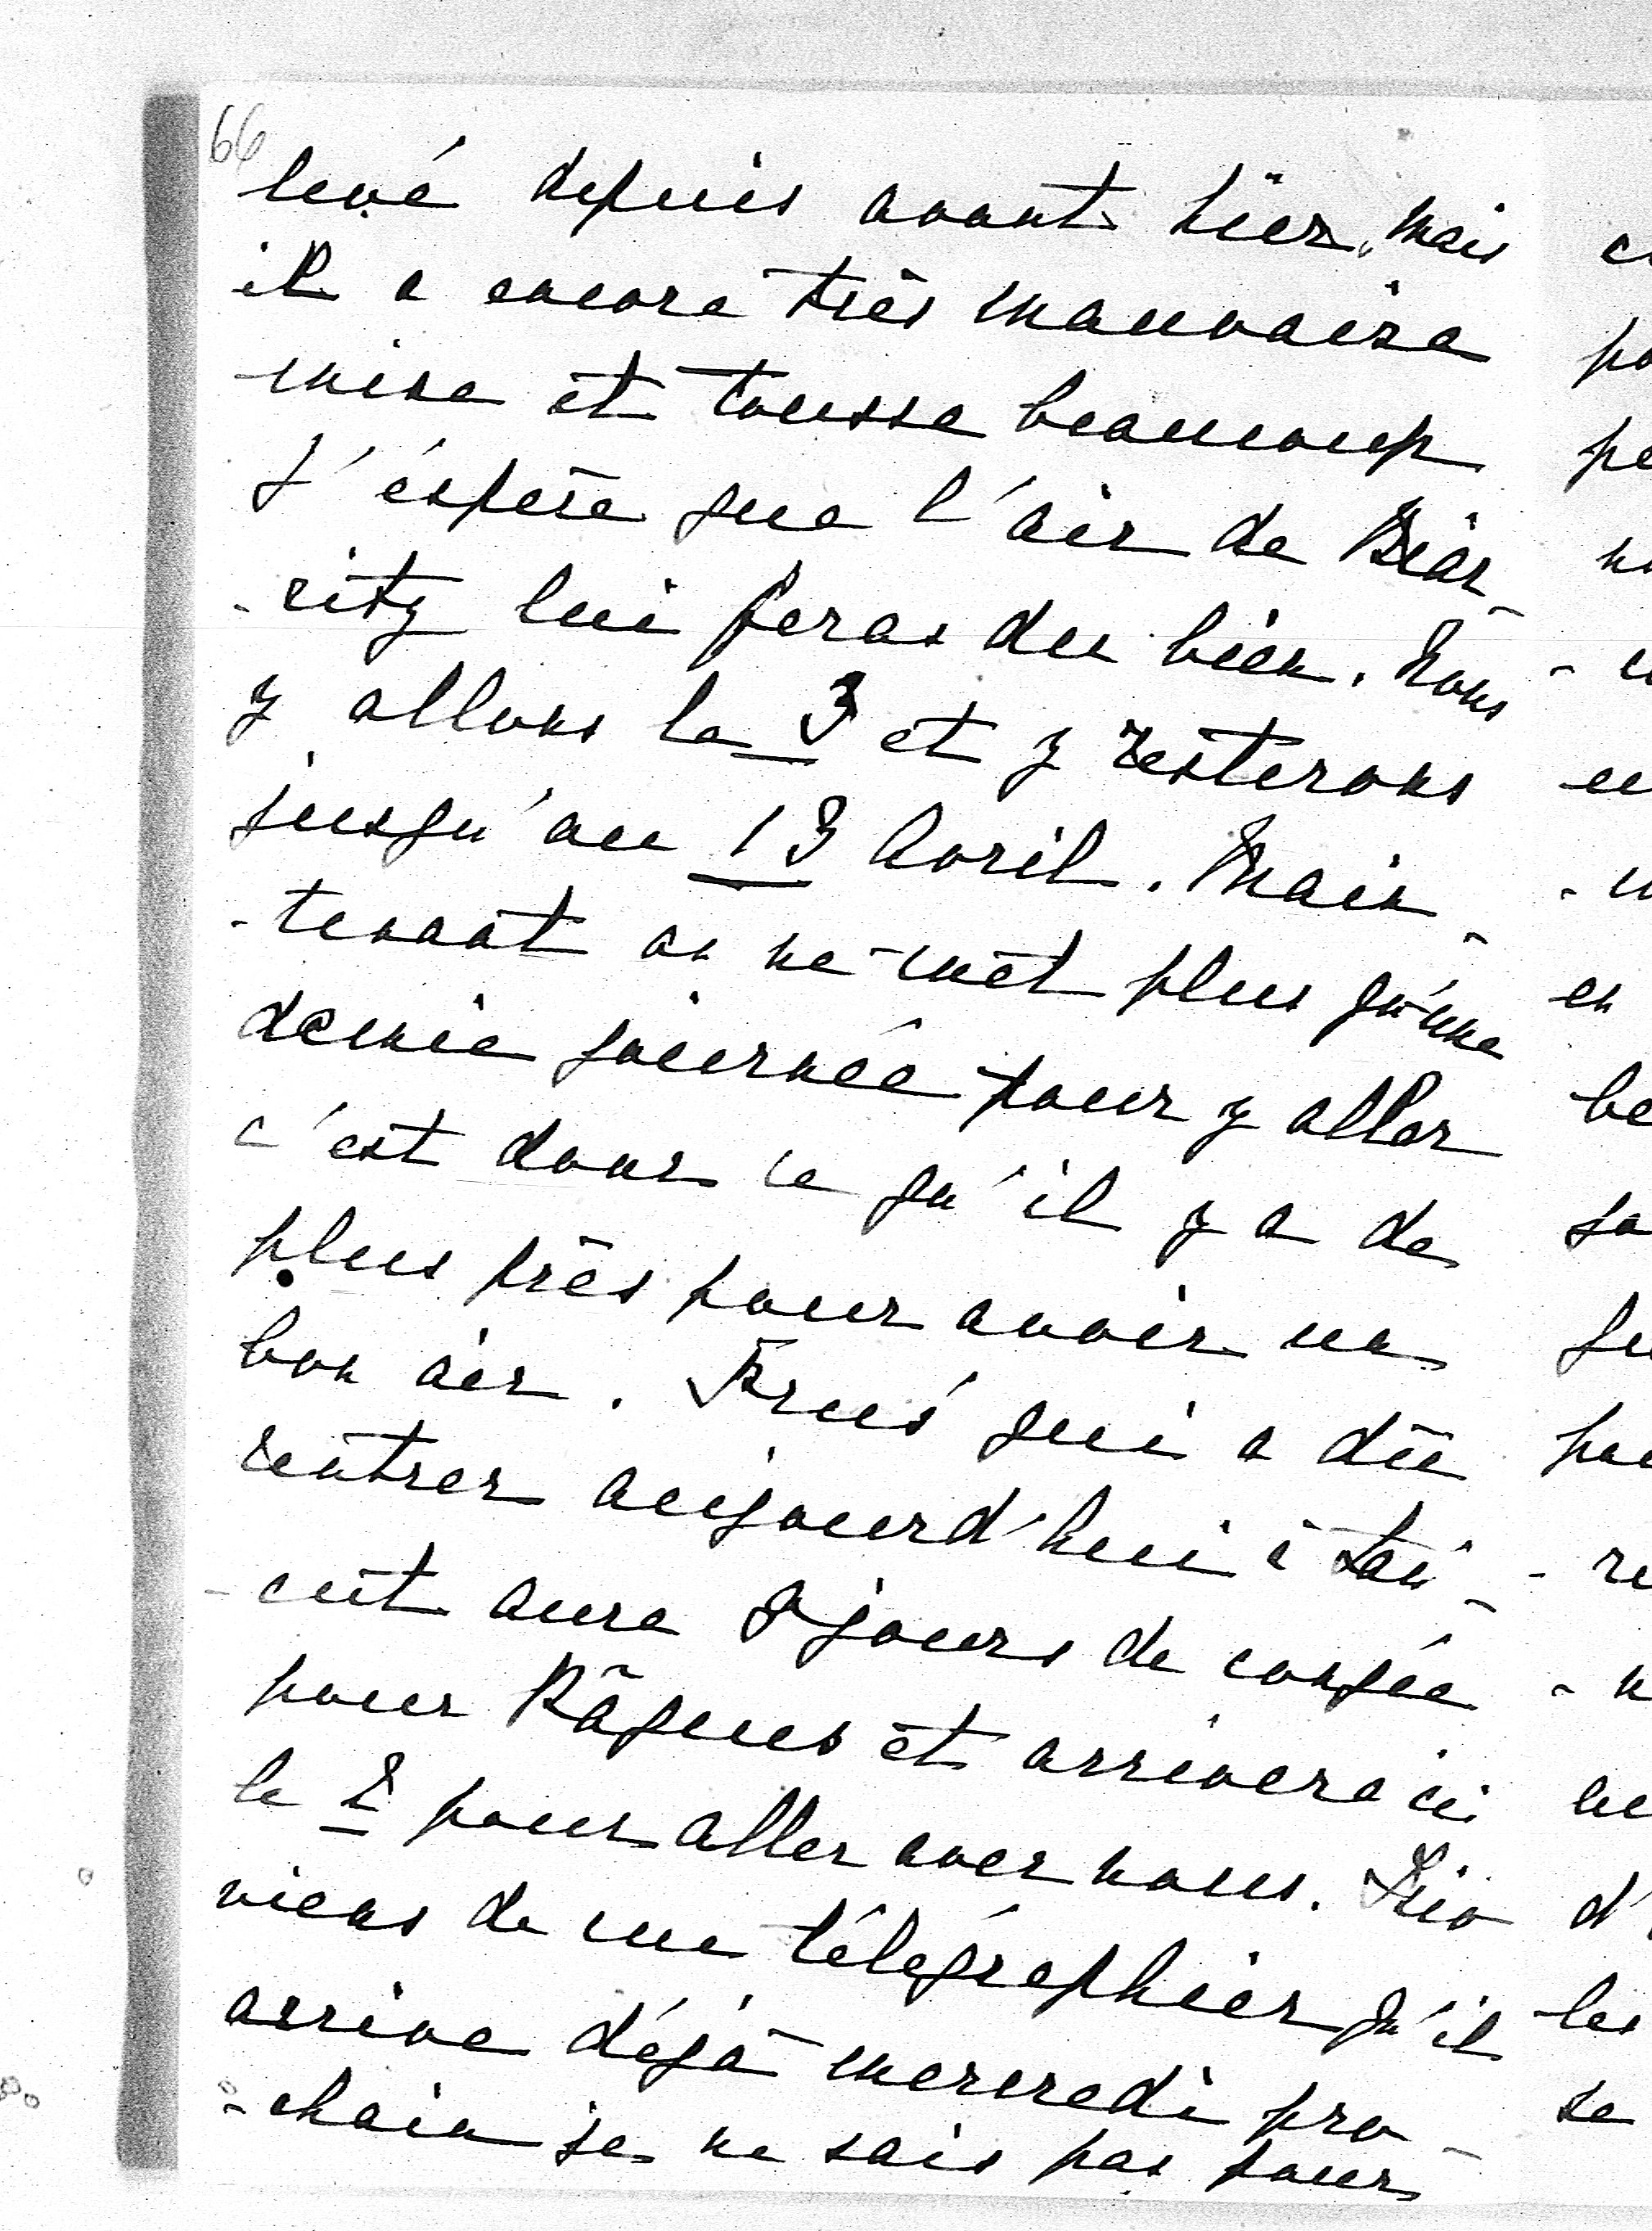 66
levé depuis avant hier, mais
il a encore très mauvaise
mine et tousse beaucoup
J'éspère que l'air de Biar-
-ritz lui feras du bien. Nous
y allons le 3 et y resterons
jusqu'au 13 Avril. Main-
-tenant on ne met plus qu'une
demie journée pour y aller
c'est donc ce qu'il y a de
plus près pour avoir un
bon air. qui a dû
rentrer aujourd'hui à
aura jours de congée
pour Pâques et arrivera ici
le 2 pour aller avec nous.
viens de me télégraphier qu'il
arrive déjà mercredi pro-
-chain je ne sais pas pour